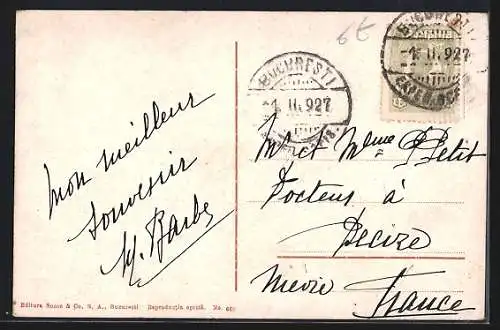 6€
BUCURESTI
-1. II. 927
BUCURESTI
-1. II. 927
Mon meilleur
souvenir
M. Barbe
M et Mme Petit
Docteur à
Decize
Nièvre
France
Editura Socec & Co. S. A., Bucuresti Reproducția oprită. No.